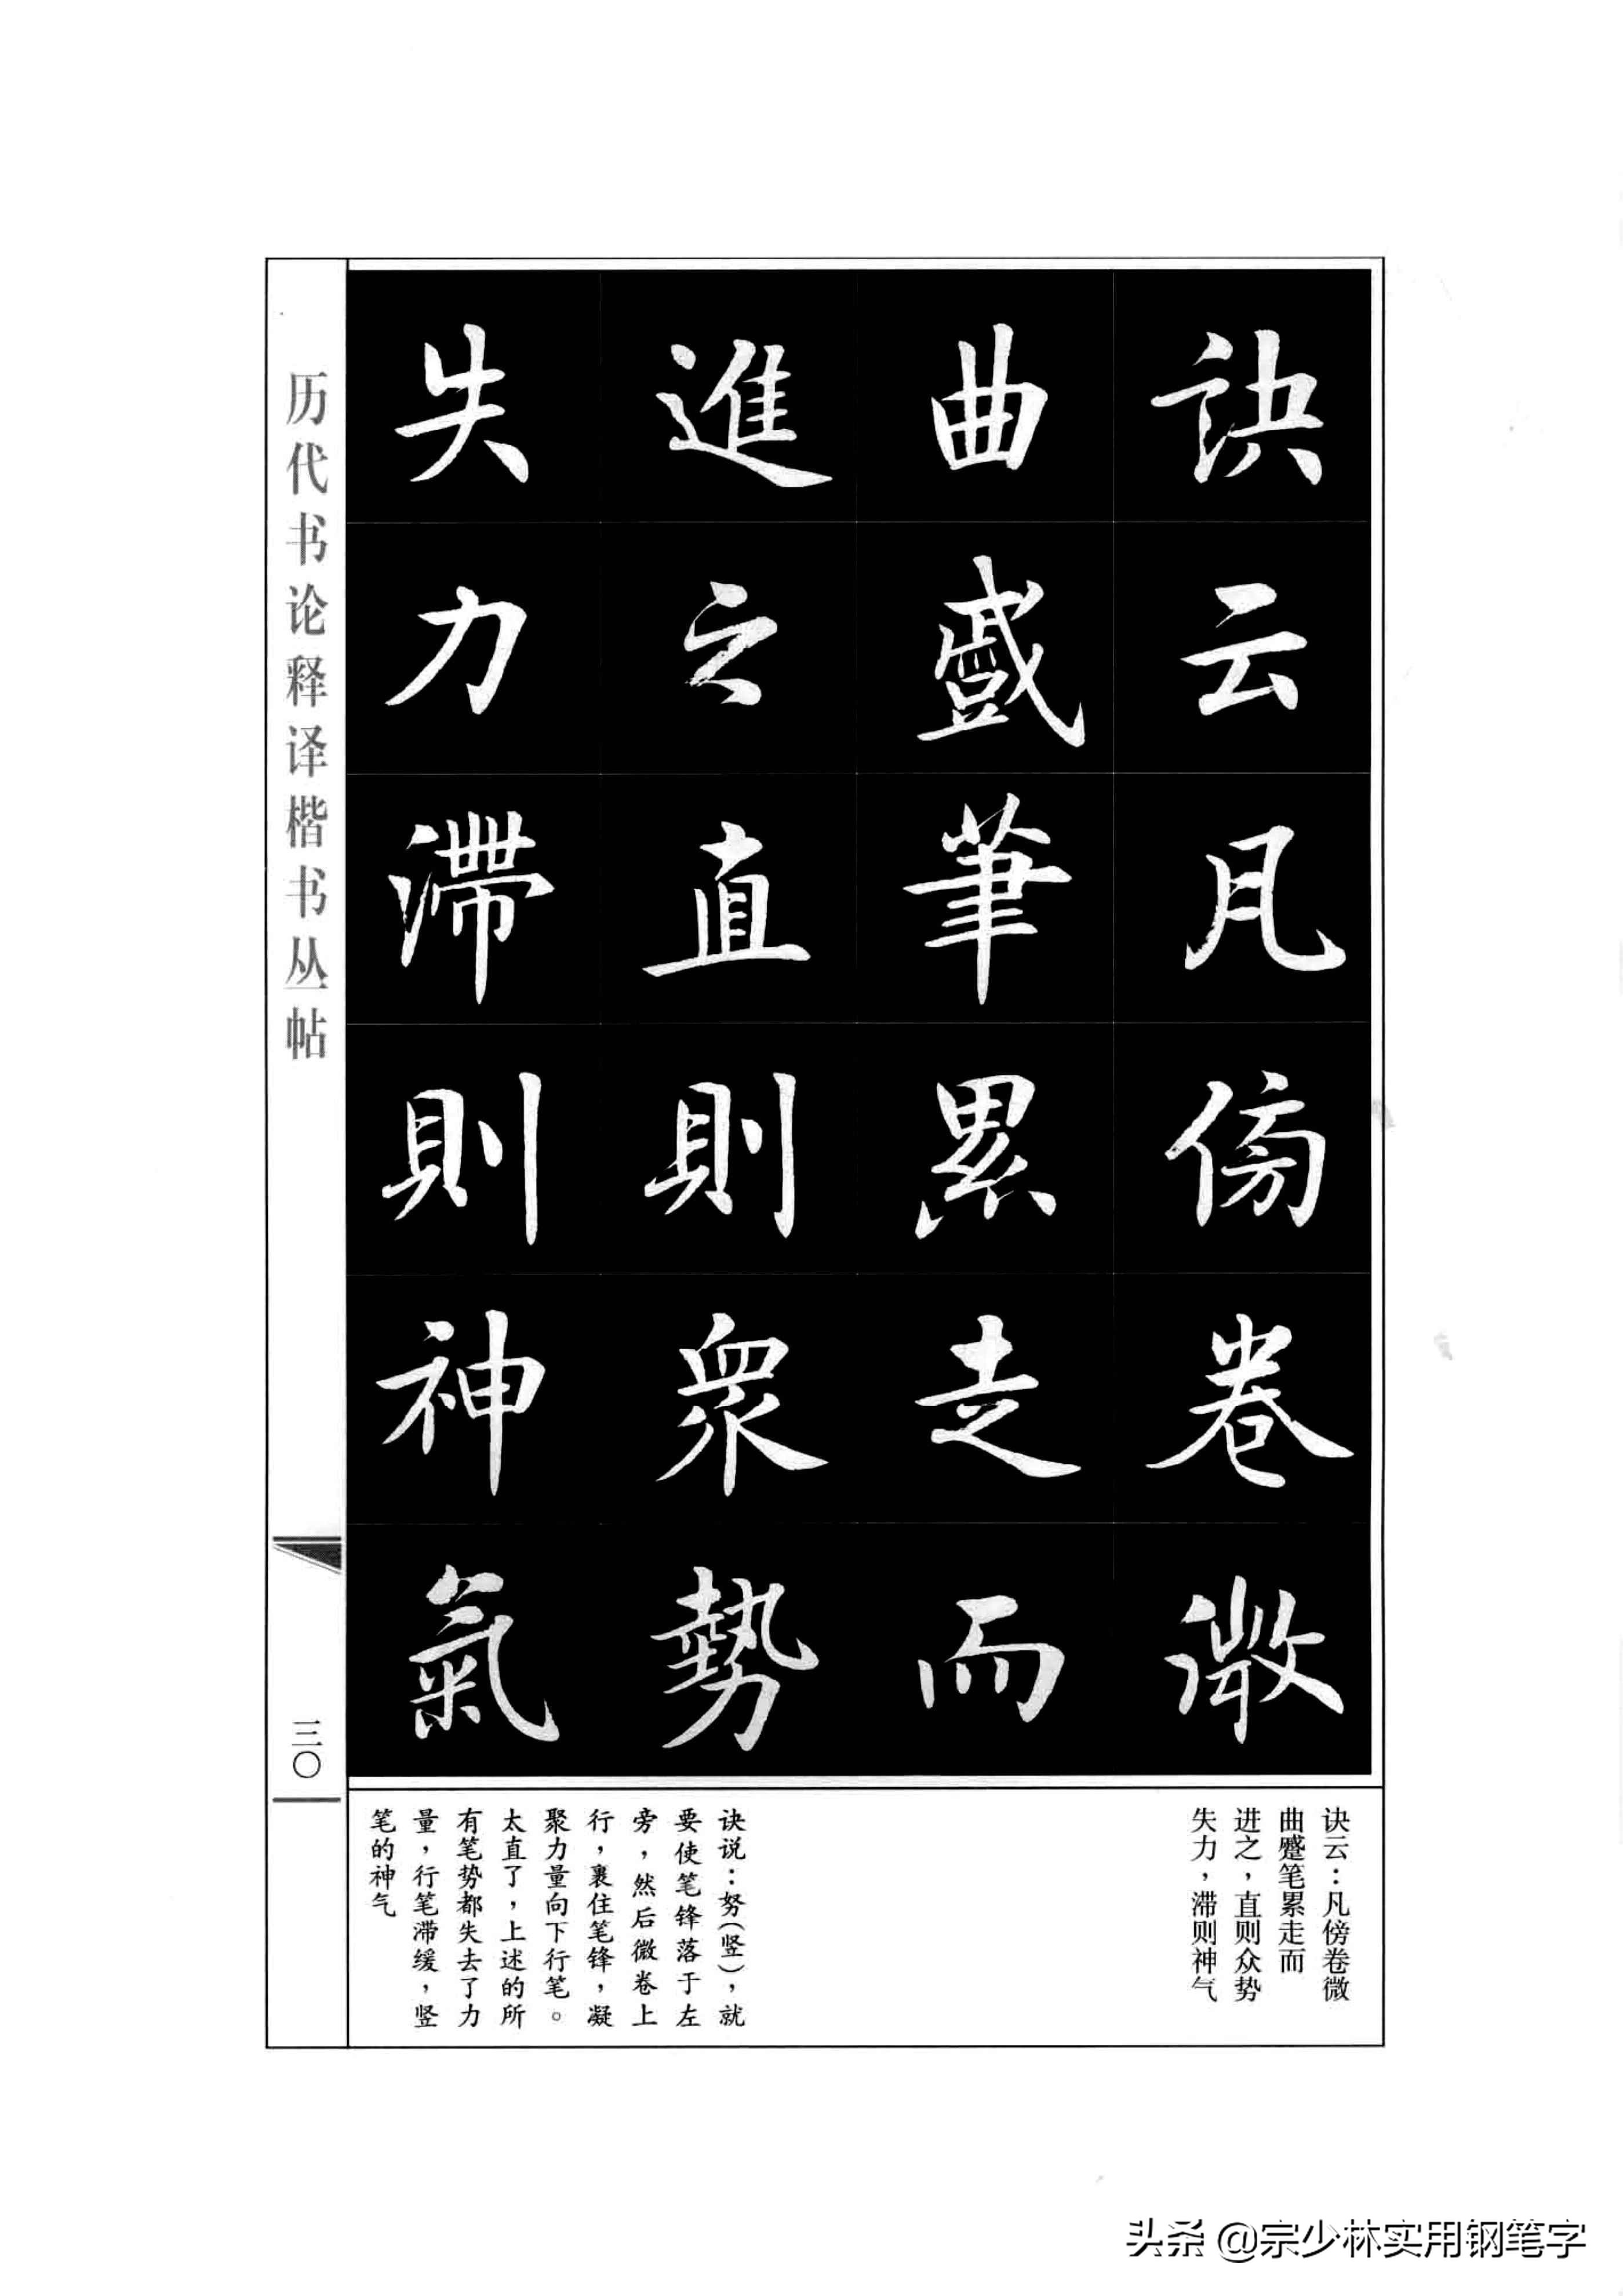 訣云凡傍卷微
曲蹙筆累走而
進之直則衆勢
失力滯則神氣
历代书论释译楷书丛帖
三〇
诀云：凡傍卷微
曲蹙笔累走而
进之，直则众势
失力，滞则神气
诀说：努（竖），就
要使笔锋落于左
旁，然后微卷上
行，裹住笔锋，凝
聚力量向下行笔。
太直了，上述的所
有笔势都失去了力
量，行笔滞缓，竖
笔的神气
头条 @宗少林实用钢笔字